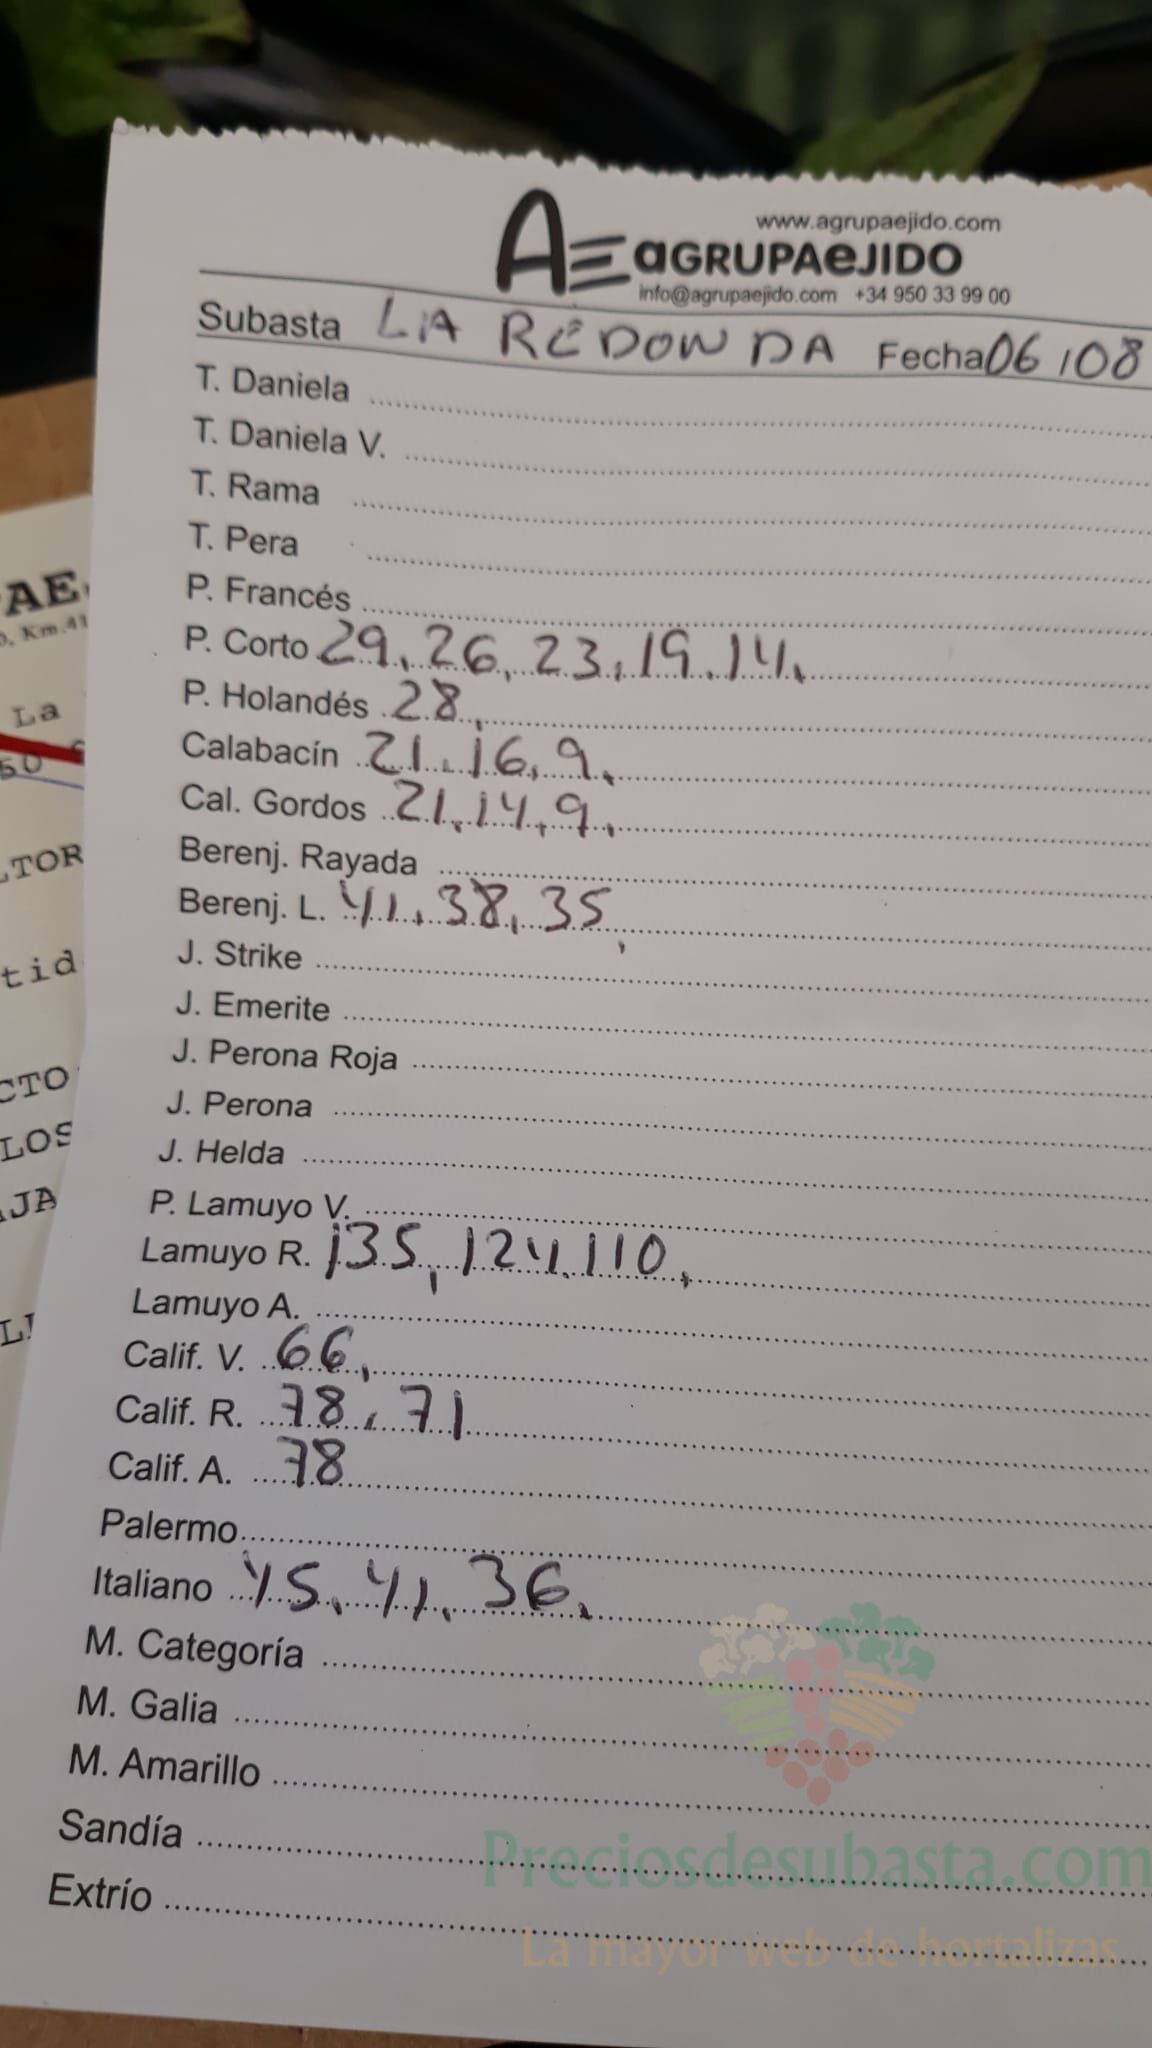 www.agrupaejido.com
AE aGRUPAeJIDO
info@agrupaejido.com +34 950 33 99 00
Subasta LA REDONDA Fecha 06/08
T. Daniela
T. Daniela V.
T. Rama
T. Pera
P. Francés
P. Corto 29, 26, 23, 19, 14,
P. Holandés 28,
Calabacín 21, 16, 9,
Cal. Gordos 21, 14, 9,
Berenj. Rayada
Berenj. L. 41, 38, 35,
J. Strike
J. Emerite
J. Perona Roja
J. Perona
J. Helda
P. Lamuyo V.
Lamuyo R. 135, 124, 110,
Lamuyo A.
Calif. V. 66,
Calif. R. 78, 71
Calif. A. 78
Palermo
Italiano 45, 41, 36,
M. Categoría
M. Galia
M. Amarillo
Sandía
Extrío
Preciosdesubasta.com
La mayor web de hortalizas
PAE
Km.41
La
50
LTOR
tid
CTO
LOS
AJA